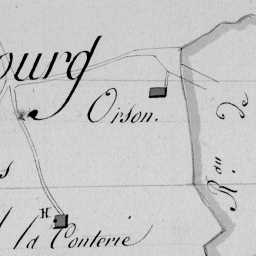 ourg
Oison.
R.au de
s
H
la Conterie